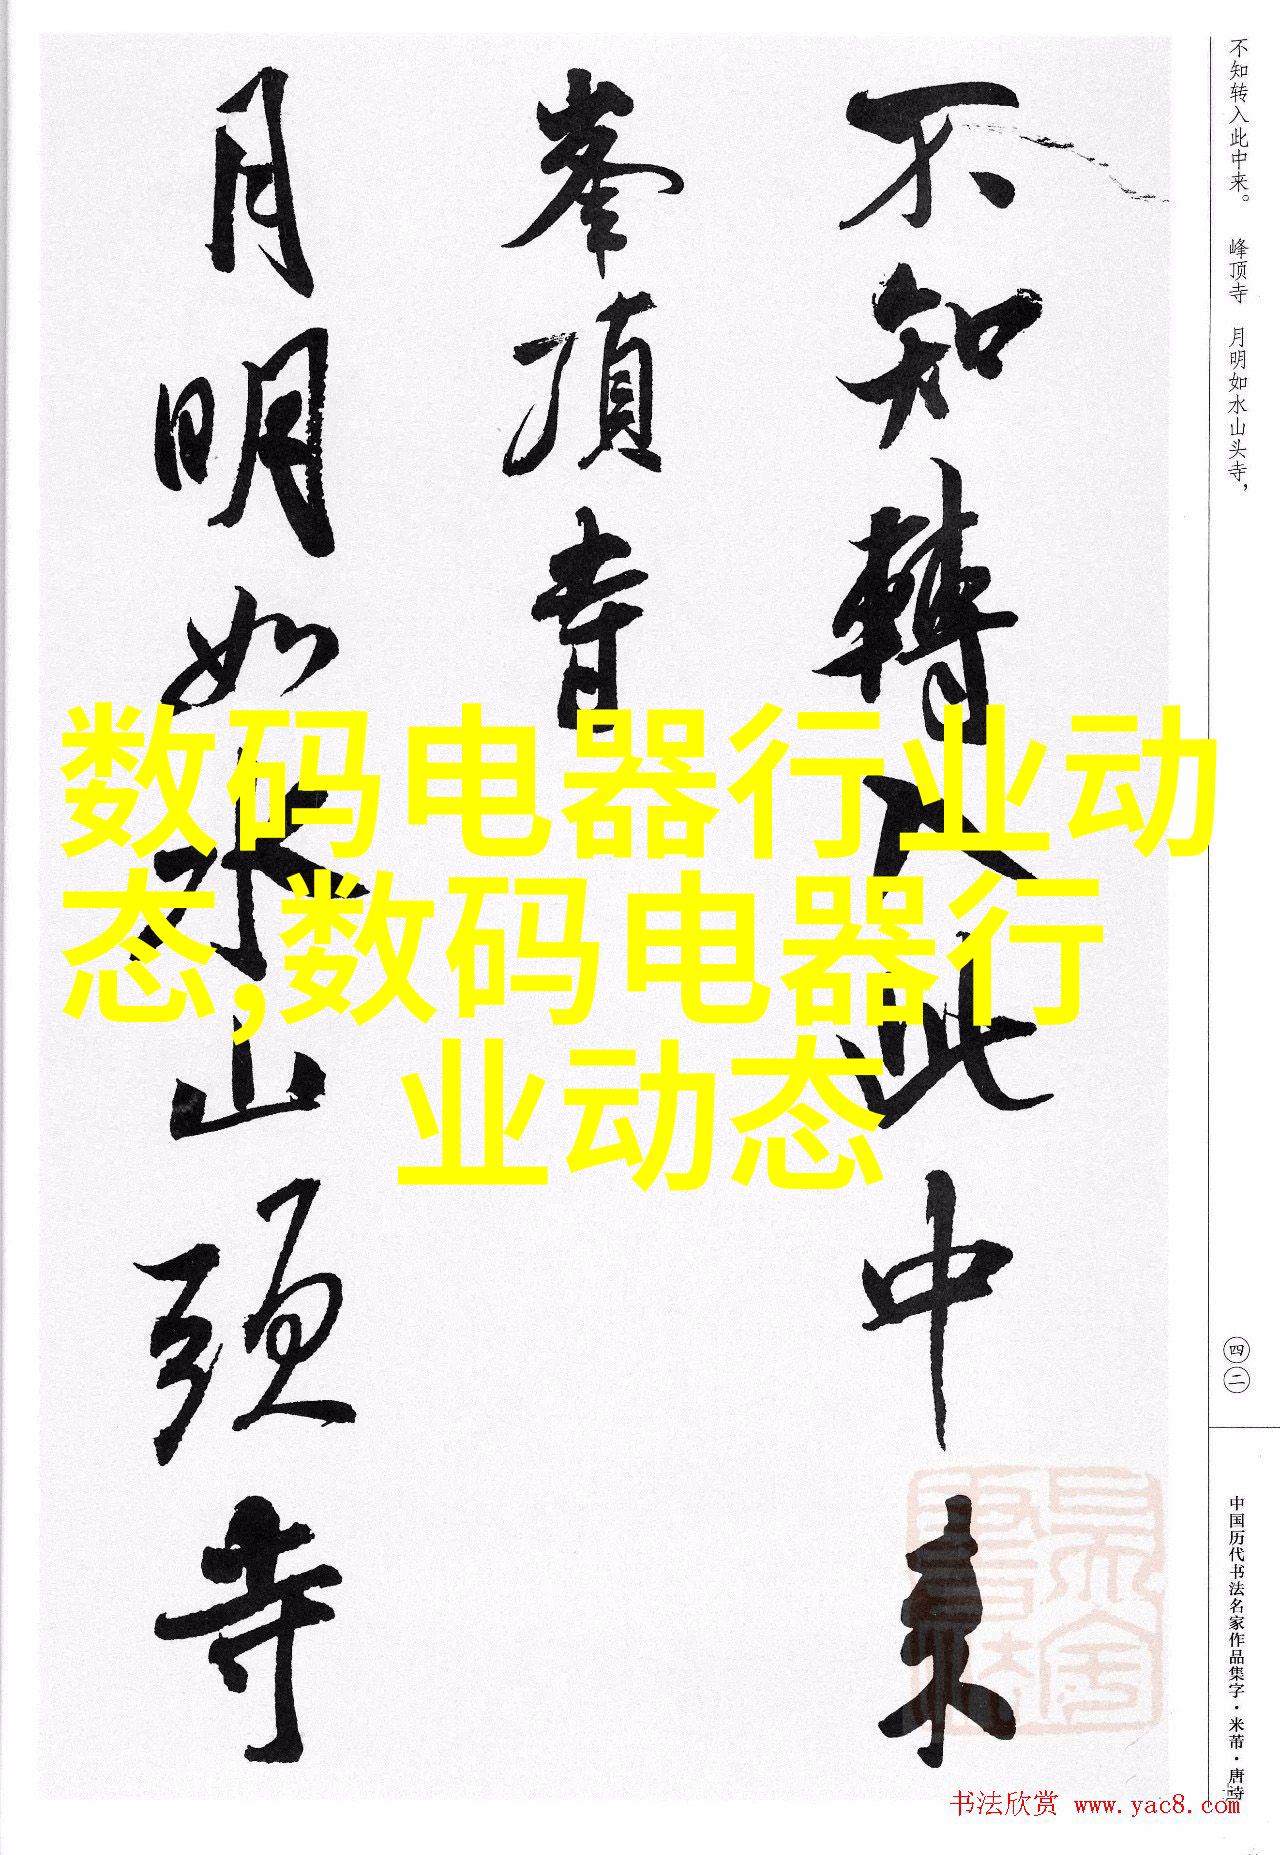 不知轉入此中来
峯頂寺
月明如水山頭寺
数码电器行业动
态,数码电器行
业动态
不知转入此中来。 峰顶寺 月明如水山头寺，
四二
中国历代书法名家作品集字·米芾·唐诗
书法欣赏 www.yac8.com